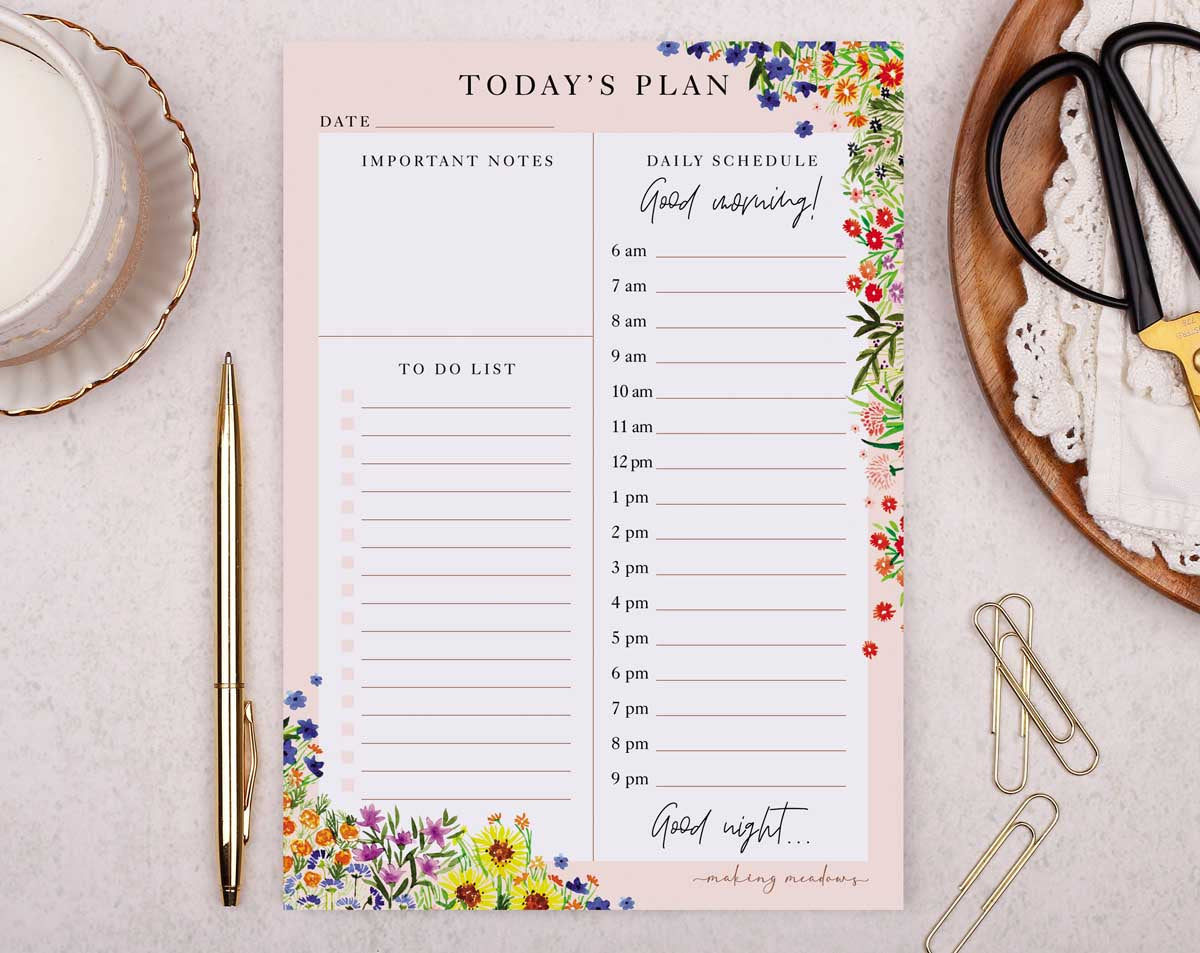 TODAY'S PLAN
DATE
IMPORTANT NOTES
TO DO LIST
DAILY SCHEDULE
Good morning!
6 am
7 am
8 am
9 am
10 am
11 am
12 pm
1 pm
2 pm
3 pm
4 pm
5 pm
6 pm
7 pm
8 pm
9 pm
Good night...
making meadows